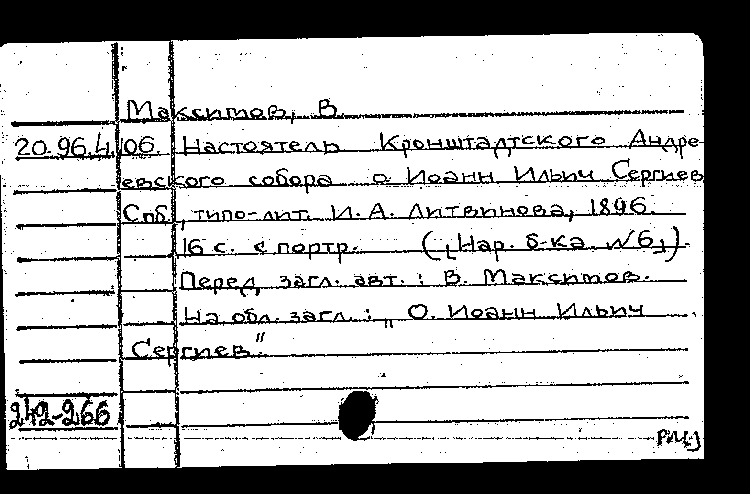 Максимов, В.
20.96.4.106. Настоятель Кронштадтского Андре-
евского собора о. Иоанн Ильич Сергиев
Спб., типо-лит. И. А. Литвинова, 1896.
16 с. с портр. ([Нар. б-ка. №6])
Перед загл. авт.: В. Максимов.
На обл. загл.: „О. Иоанн Ильич
Сергиев"
242-266